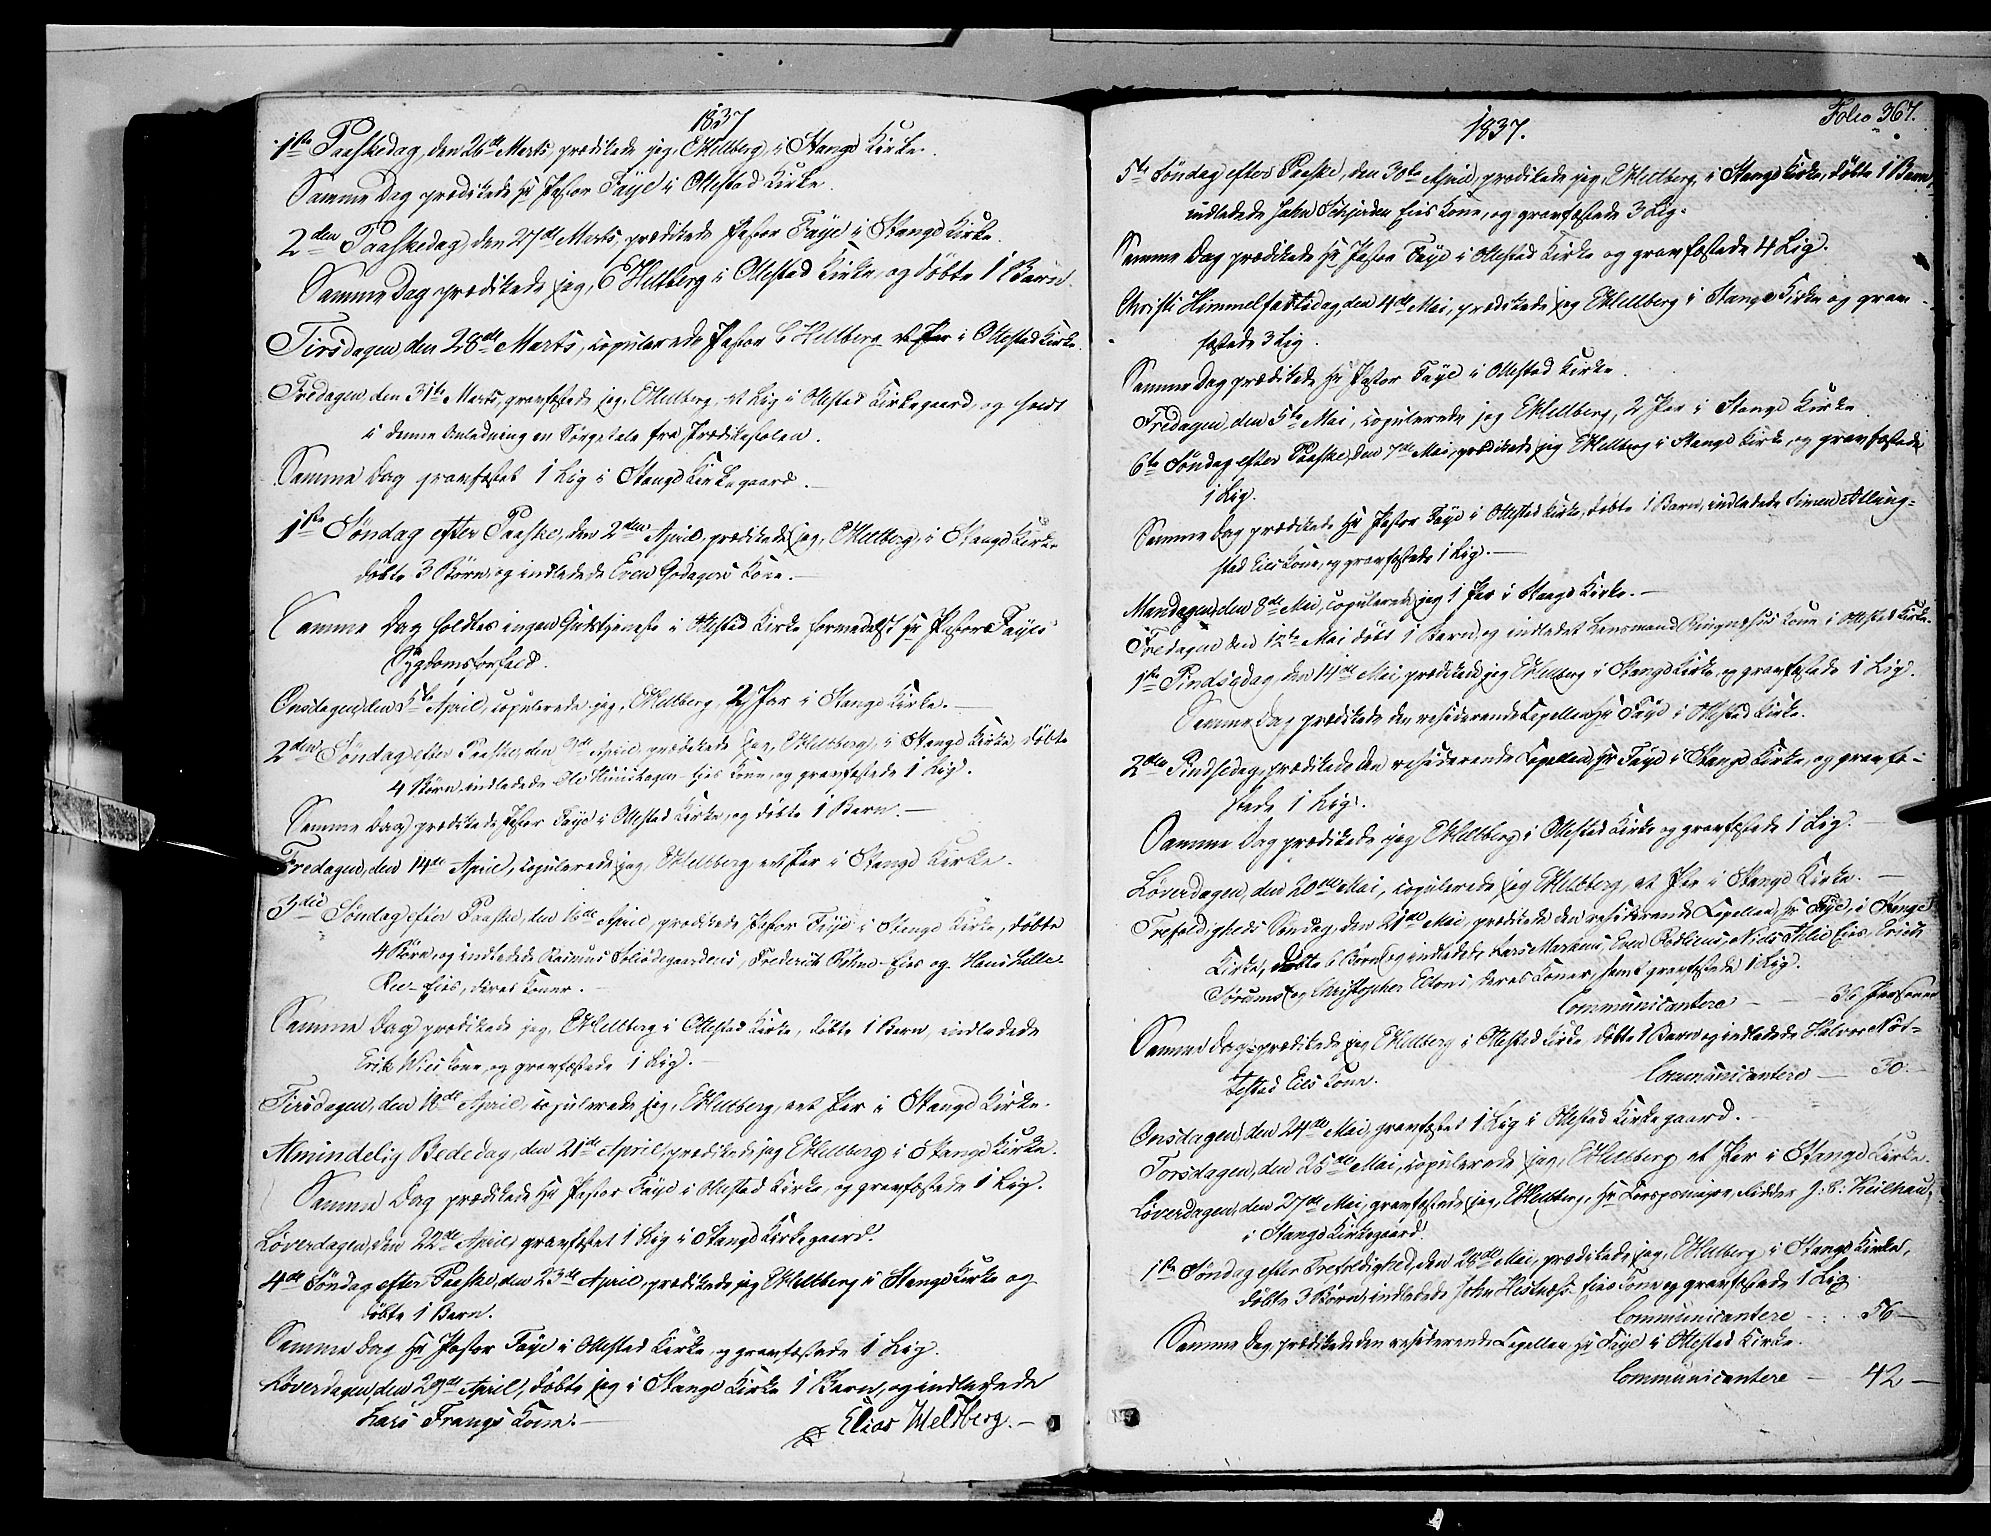 1837
1ste Paaskedag, den 26de Marts, prædikede jeg, E Heltberg, i Stange Kirke.
Samme Dag prædikede Hr Pastor Faye i Ottestad Kirke.
2den Paaskedag, den 27de Marts, prædikede Pastor Faye i Stange Kirke.
Samme Dag prædikede jeg, E Heltberg i Ottestad Kirke, og døbte 1 Barn.
Tirsdagen den 28de Marts, copulerede Pastor E Heltberg et Par i Ottestad Kirke.
Fredagen den 31te Marts, gravfæstede jeg, E Heltberg, et Lig i Ottestad Kirkegaard, og holdt
i denne Anledning en Sørgetale fra Prædikestolen.
Samme Dag gravfæstet 1 Lig i Stange Kirkegaard.
1ste Søndag efter Paaske, den 2den April, prædikede jeg, E Heltberg, i Stange Kirke
døbte 3 Børn, og indledede Even Godagers Kone.
Samme Dag holdtes ingen Gudstjeneste i Ottestad Kirke formedelst Hr Pastor Fayes
Sygdomsforfald.
Onsdagen, den 5te April, copulerede jeg, E Heltberg, 2 Par i Stange Kirke.
2den Søndag efter Paaske, den 9de April, prædikede jeg, E Heltberg, i Stange Kirke, døbte
4 Børn, indledede Ole Eies Kone, og gravfæstede 1 Lig.
Samme Dag prædikede Pastor Faye i Ottestad Kirke, og døbte 1 Barn.
Fredagen, den 14de April, copulerede jeg, E Heltberg, et Par i Stange Kirke.
3die Søndag efter Paaske, den 16de April, prædikede Pastor Faye i Stange Kirke, døbte
4 Børn, og indledede Rasmus, Frederik Bøhn Eies og Hans Lille-
Rue Eies, deres Koner.
Samme Dag prædikede jeg, E Heltberg i Ottestad Kirke, døbte 1 Barn, indledede
Erik Wiis Kone, og gravfæstede 1 Lig.
Tirsdagen, den 18de April, copulerede jeg, E Heltberg, et Par i Stange Kirke.
Almindelig Bededag, den 21de April, prædikede jeg E Heltberg i Stange Kirke.
Samme Dag prædikede Hr Pastor Faye i Ottestad Kirke, og gravfæstede 1 Lig.
Løverdagen, den 22de April, gravfæstet 1 Lig i Stange Kirkegaard.
4de Søndag efter Paaske, den 23de April, prædikede jeg E Heltberg i Stange Kirke og
døbte 1 Barn.
Samme Dag Hr Pastor Faye i Ottestad Kirke og gravfæstede 1 Lig.
Løverdagen, den 29de April, døbte jeg i Stange Kirke 1 Barn, og indledede
Lars Frangs Kone.
Elias Heltberg.
Folio 367.
1837.
5te Søndag efter Paaske, den 30te April, prædikede jeg, E Heltberg, i Stange Kirke, døbte 1 Barn,
indledede John Schjerden Eies Kone, og gravfæstede 3 Lig.
Samme Dag prædikede Hr Pastor Faye i Ottestad Kirke og gravfæstede 4 Lig.
Christi Himmelfartsdag, den 4de Mai, prædikede jeg E Heltberg i Stange Kirke og grav-
fæstede 3 Lig.
Samme Dag prædikede Hr Pastor Faye i Ottestad Kirke.
Fredagen, den 5te Mai, copulerede jeg E Heltberg, 2 Par i Stange Kirke.
6te Søndag efter Paaske, den 7de Mai, prædikede jeg E Heltberg i Stange Kirke, og gravfæstede
1 Lig.
Samme Dag prædikede Hr Pastor Faye i Ottestad Kirke, døbte 1 Barn, indledede Simen Atlung-
stad Eies Kone, og gravfæstede 1 Lig.
Mandagen, den 8de Mai, copulerede jeg 1 Par i Stange Kirke.
Fredagen den 12te Mai døbt 1 Barn, og indledet Lensmand Ringnæs's Kone i Ottestad Kirke.
1ste Pindsedag, den 14de Mai, prædikede jeg E Heltberg i Stange Kirke, og gravfæstede 1 Lig.
Samme Dag prædikede den residerende Capellan Hr Faye i Ottestad Kirke.
2den Pindsedag, prædikede den residerende Capellan, Hr Faye i Stange Kirke, og gravfæ-
stede 1 Lig.
Samme Dag prædikede jeg E Heltberg i Ottestad Kirke og gravfæstede 1 Lig.
Løverdagen, den 20de Mai, copulerede jeg E Heltberg, et Par i Stange Kirke.
Trefoldigheds Søndag, den 21de Mai, prædikede den residerende Capellan, Hr Faye, i Stange
Kirke, døbte 6 Børn, og indledede, Lars, Even, Niels Eies, Erich
Sørums, og Christopher, deres Koner, samt gravfæstede 1 Lig.
Communicantere — 36 Personer
Samme Dag prædikede jeg E Heltberg i Ottestad Kirke, døbte 1 Barn og indledede Halvor Nøt-
testad Eies Kone. Communicantere — 30 —
Onsdagen, den 24de Mai, gravfæstet 1 Lig i Ottestad Kirkegaard.
Torsdagen, den 25de Mai, copulerede jeg, E Heltberg et Par i Stange Kirke.
Løverdagen, den 27de Mai, gravfæstede jeg, E Heltberg, Hr Corpsmajor, Ridder J: C: Keilhau,
i Stange Kirkegaard.
1ste Søndag efter Trefoldighed, den 28de Mai, prædikede jeg, E Heltberg i Stange Kirke,
døbte 3 Børn, indledede John Hestnæs Eies Kone og gravfæstede 1 Lig.
Communicantere — 56 —
Samme Dag, prædikede den residerende Capellan Hr Faye i Ottestad Kirke.
Communicantere — 42 —